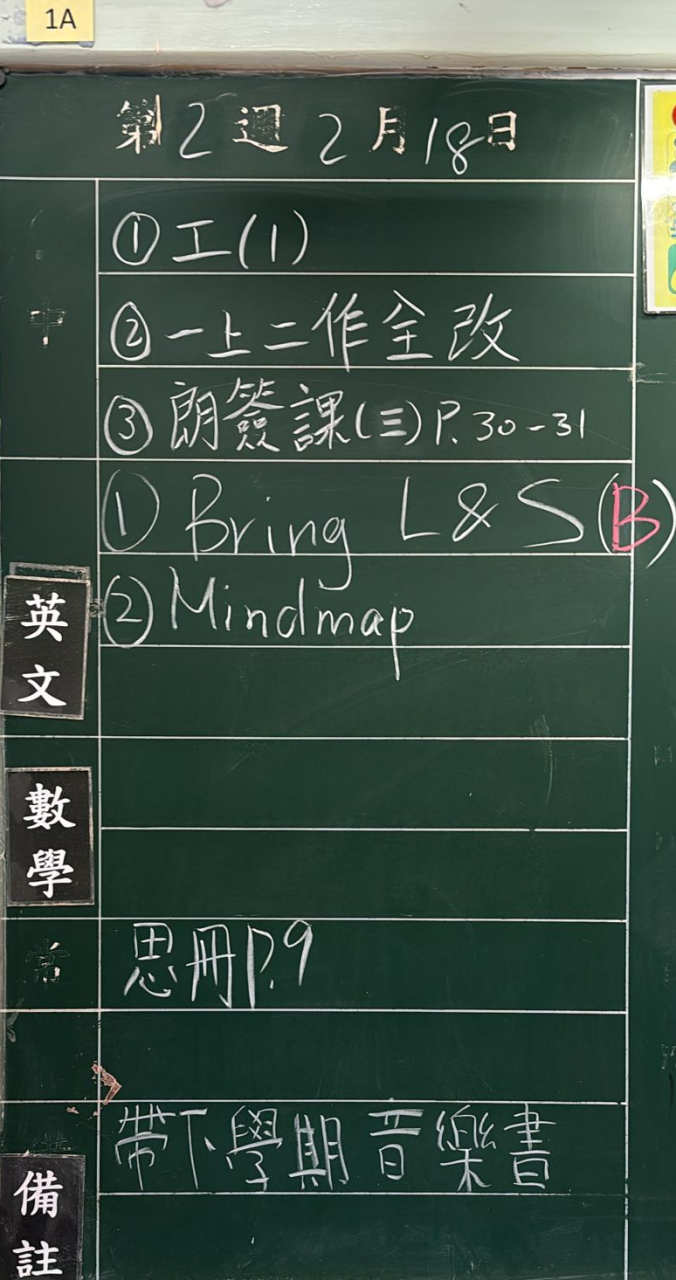 1A
第2週2月18日
中
①工(1)
②一上二作全改
③朗簽課(三)P.30-31
英文
①Bring L & S (B)
②Mindmap
數學
常
思冊P.9
備註
帶下學期音樂書